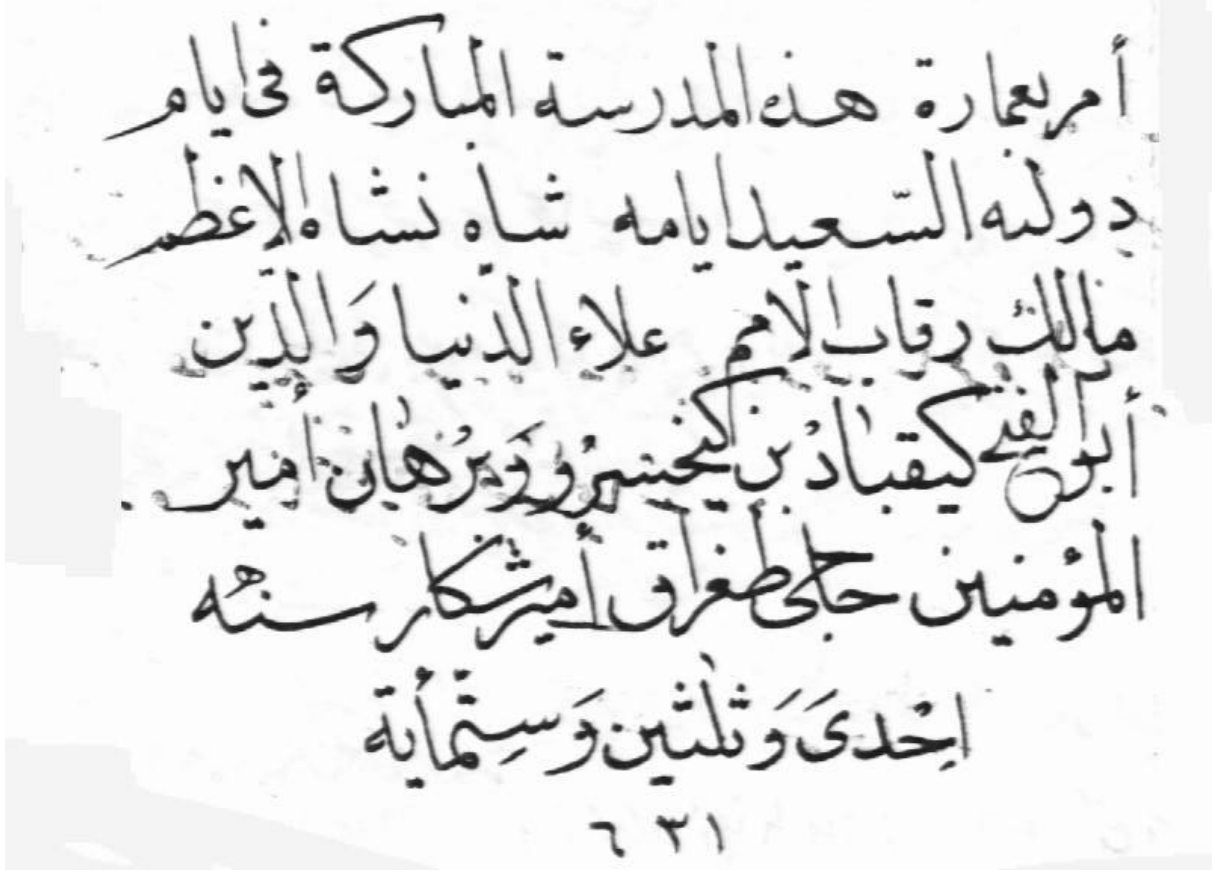 أمر بعمارة هذه المدرسة المباركة فى ايام
دولته السّعيد ايامه شاه نشاه الاعظم
مالك رقاب الامم علاء الدّنيا وَالدّين
أبو الفتح كيقباذ بن كيخسرو وَبرُهان أمير
المؤمنين حاجى طغراق أمير شكار سنه
احْدىَ وَ ثلٰثين وَ سِتّمأية
٦٣١